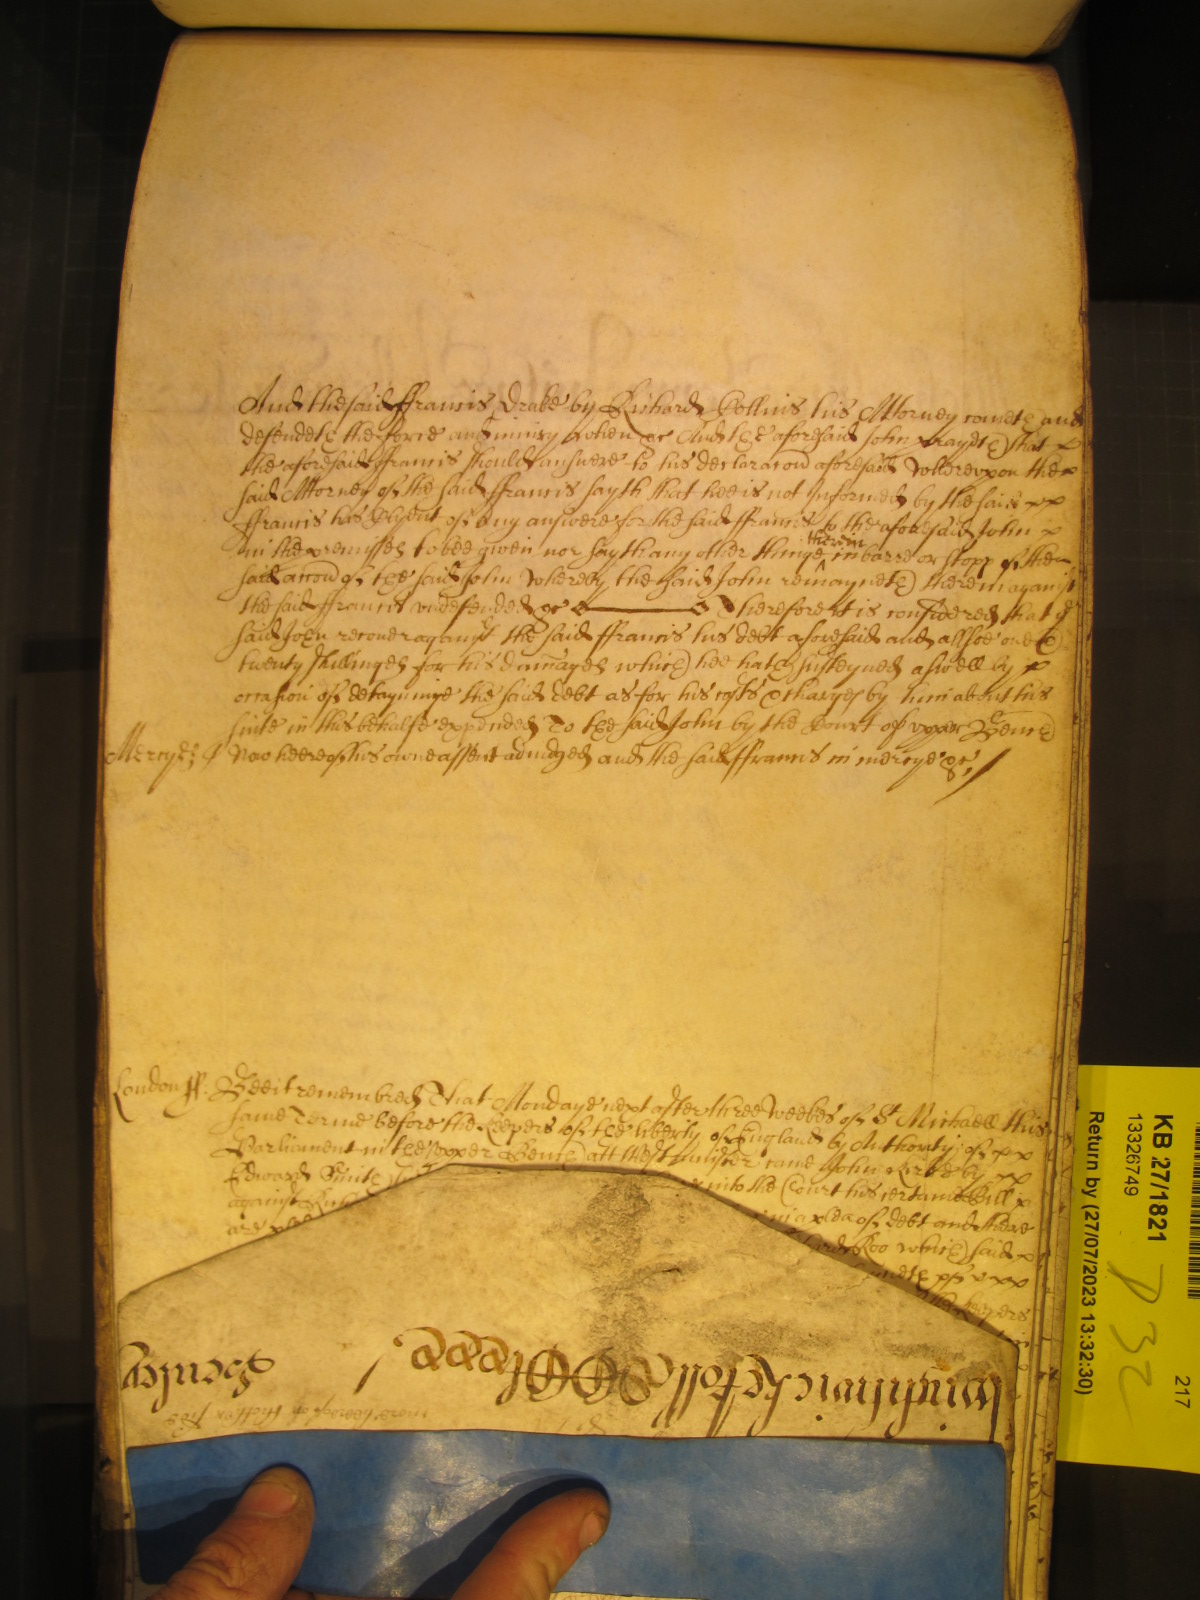 And the said ffrancis Drake by Richard Collins his Attorney cometh and
defendeth the force and iniury when &c And the aforesaid John prayeth that
the aforesaid ffrancis should answere to his declaracon aforesaid Wherevpon the
said Attorney of the said ffrancis sayth that hee is not Informed by the said
ffrancis his Clyent of any answere for the said ffrancis to the aforesaid John
in the premisses to bee given nor sayth any other thinge therein in barre or stopp of the
said accon of the said John Whereby the said John remayneth therein against
the said ffrancis vndefended &c Therefore it is considered that ye
said John recover against the said ffrancis his debt aforesaid and allsoe
twenty shillinges for his damages which hee hath susteyned aswell by
occasion of deteyninge the said debt as for his costs & charges by him about his
suite in this behalfe expended To the said John by the Court of vpper Bench
Mercye
now heere of his owne assent adiudged and the said ffrancis in mercye &c
London ss:
Bee it remembred That Mondaye next after three Weekes of St Michaell this
same Terme before the Keepers of the liberty of England by Authority of
Parliament in the vpper Bench att Westminster came John by
Edward
into the Court his certaine Bill
against
in a plea of debt and there
are
Roo which said
Keepers
KB 27/1821
13326749
Return by (27/07/2023 13:32:30)
217
D 32